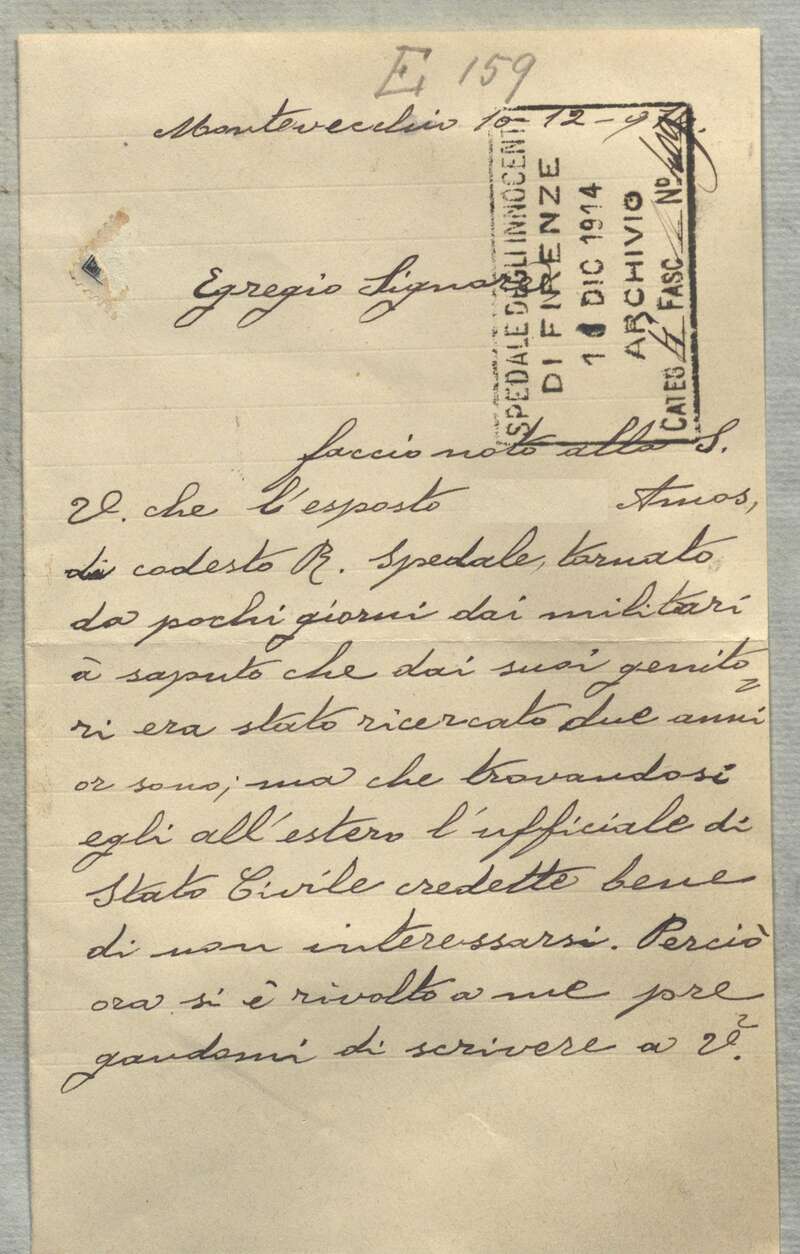 E 159
Montevecchio 10-12-914.
SPEDALE DEGLI INNOCENTI
DI FIRENZE
DIC 1914
ARCHIVIO
CATEG FASC Nº
Egregio Signore
faccio noto alla S.
V. che l'esposto Amos,
di codesto R. Spedale, tornato
da pochi giorni dai militari
à saputo che dai suoi genito
ri era stato ricercato due anni
or sono; ma che trovandosi
egli all'estero l'ufficiale di
Stato Civile credette bene
di non interessarsi. Perciò
ora si è rivolto a me pre
gandomi di scrivere a V.